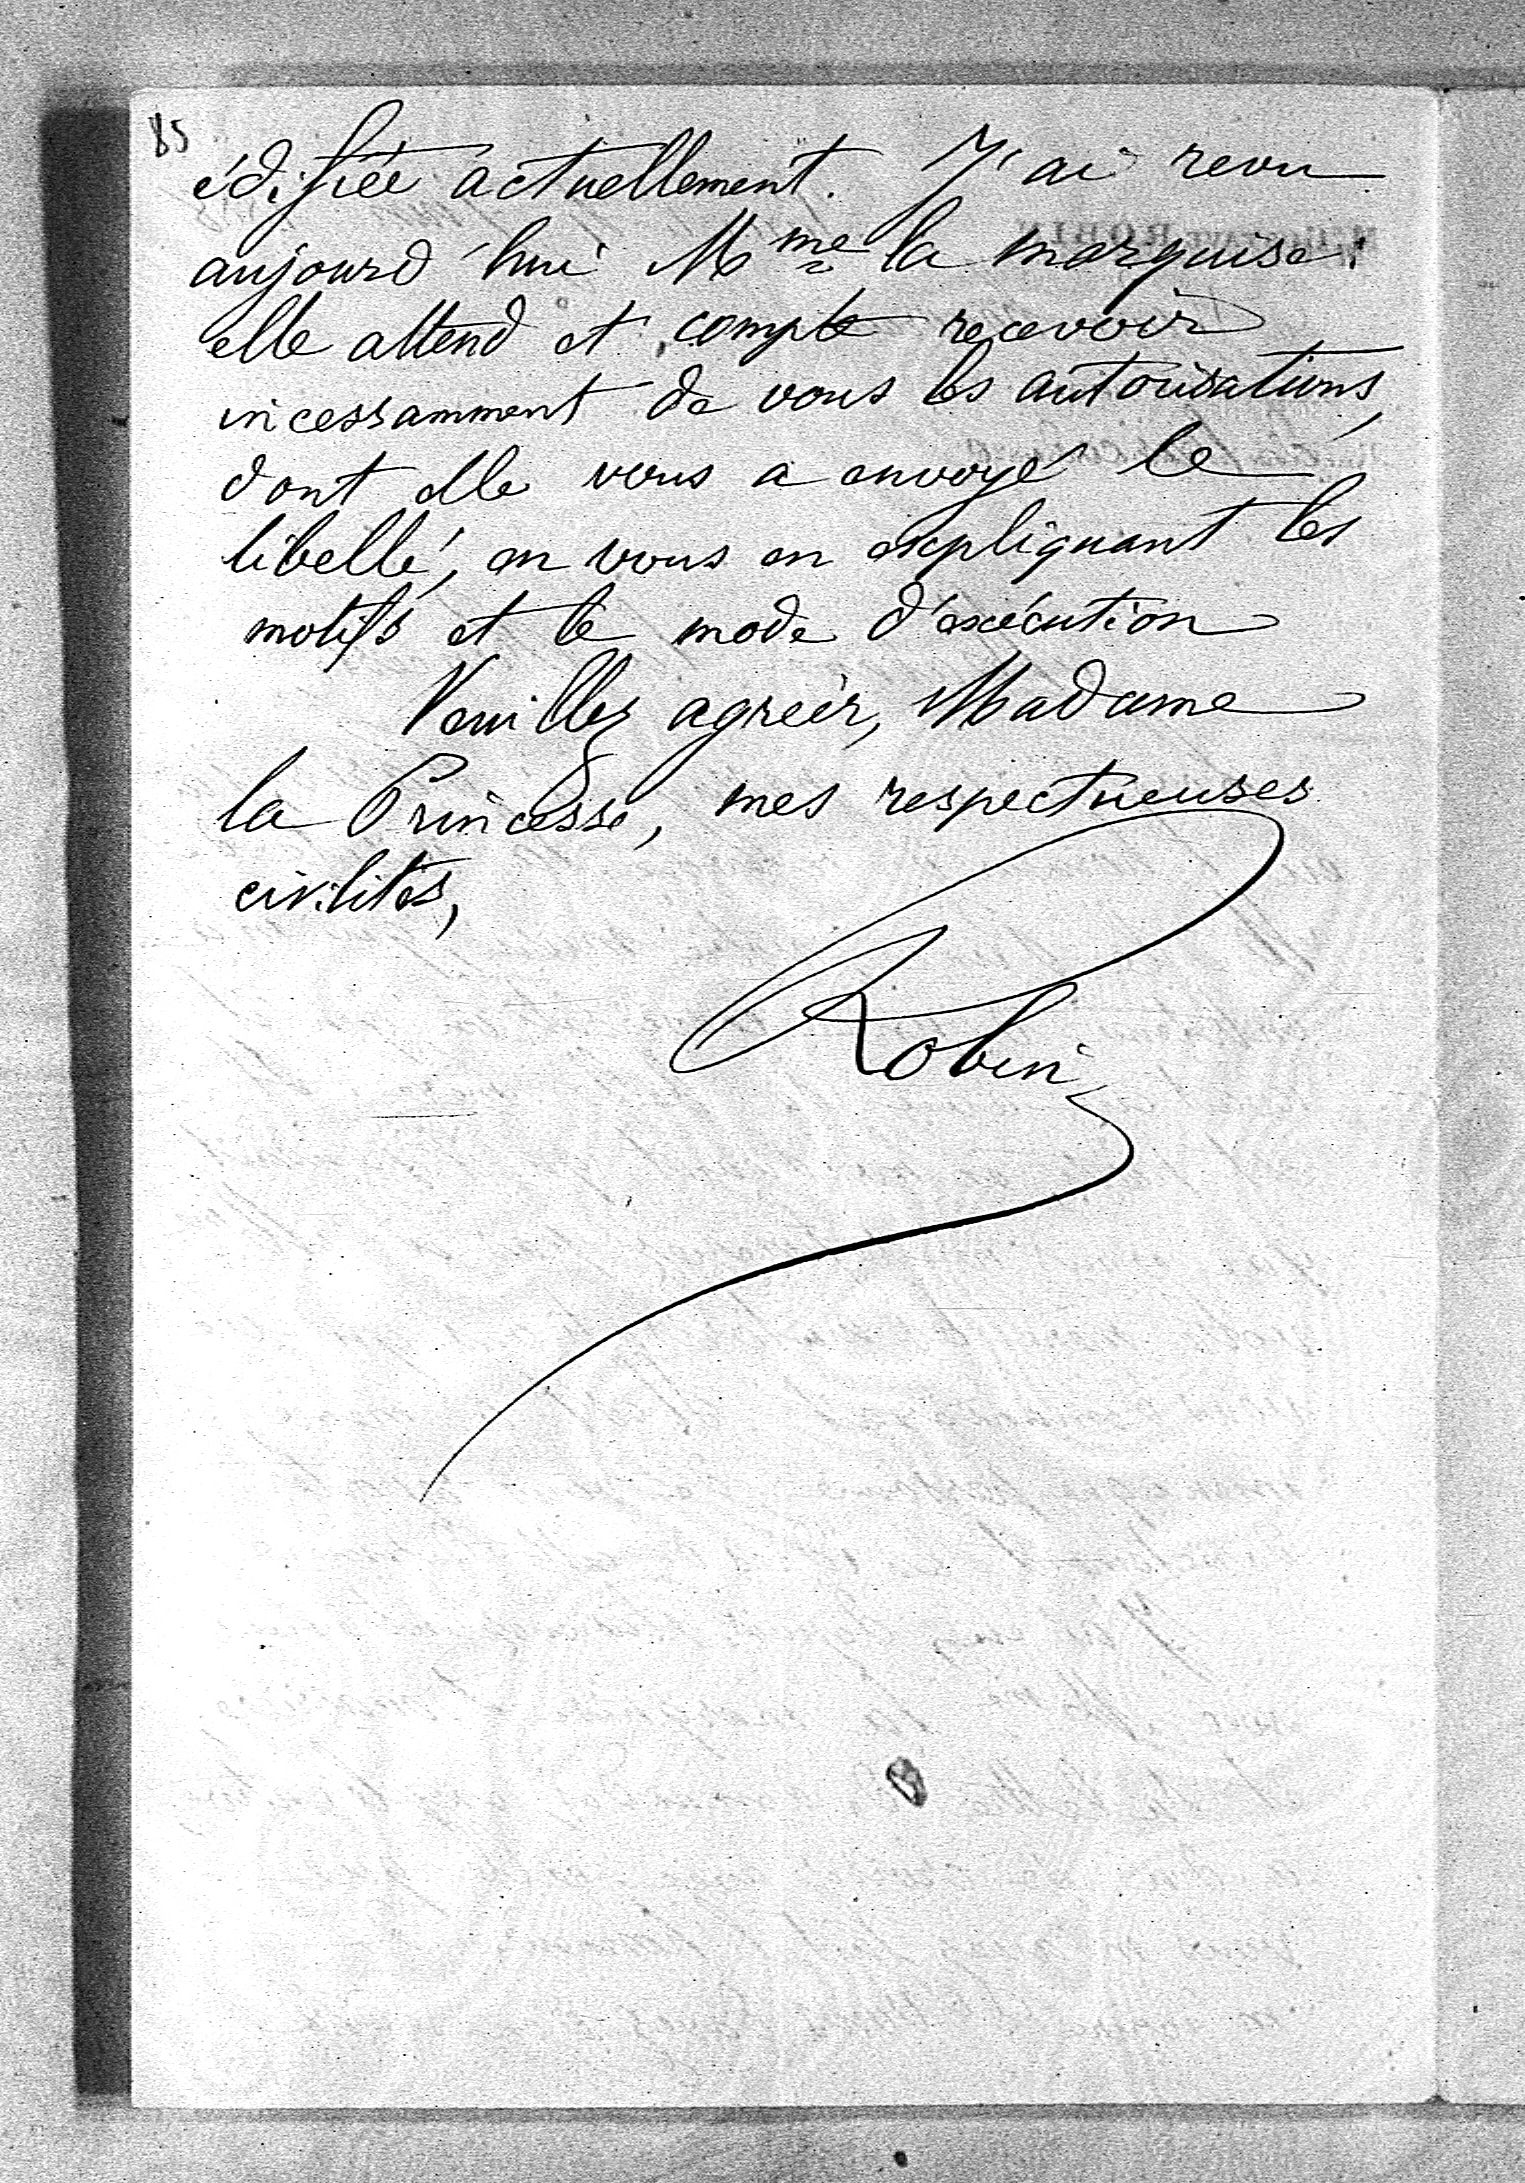 85
édifiée actuellement. J'ai revu
aujourd'hui Mme la marquise :
elle attend et compte recevoir
incessamment de vous les autorisations,
dont elle vous a envoyé le
libellé, en vous en expliquant les
motifs et le mode d'exécution
Veuillez agréer, Madame
la Princesse, mes respectueuses
civilités,
Robin